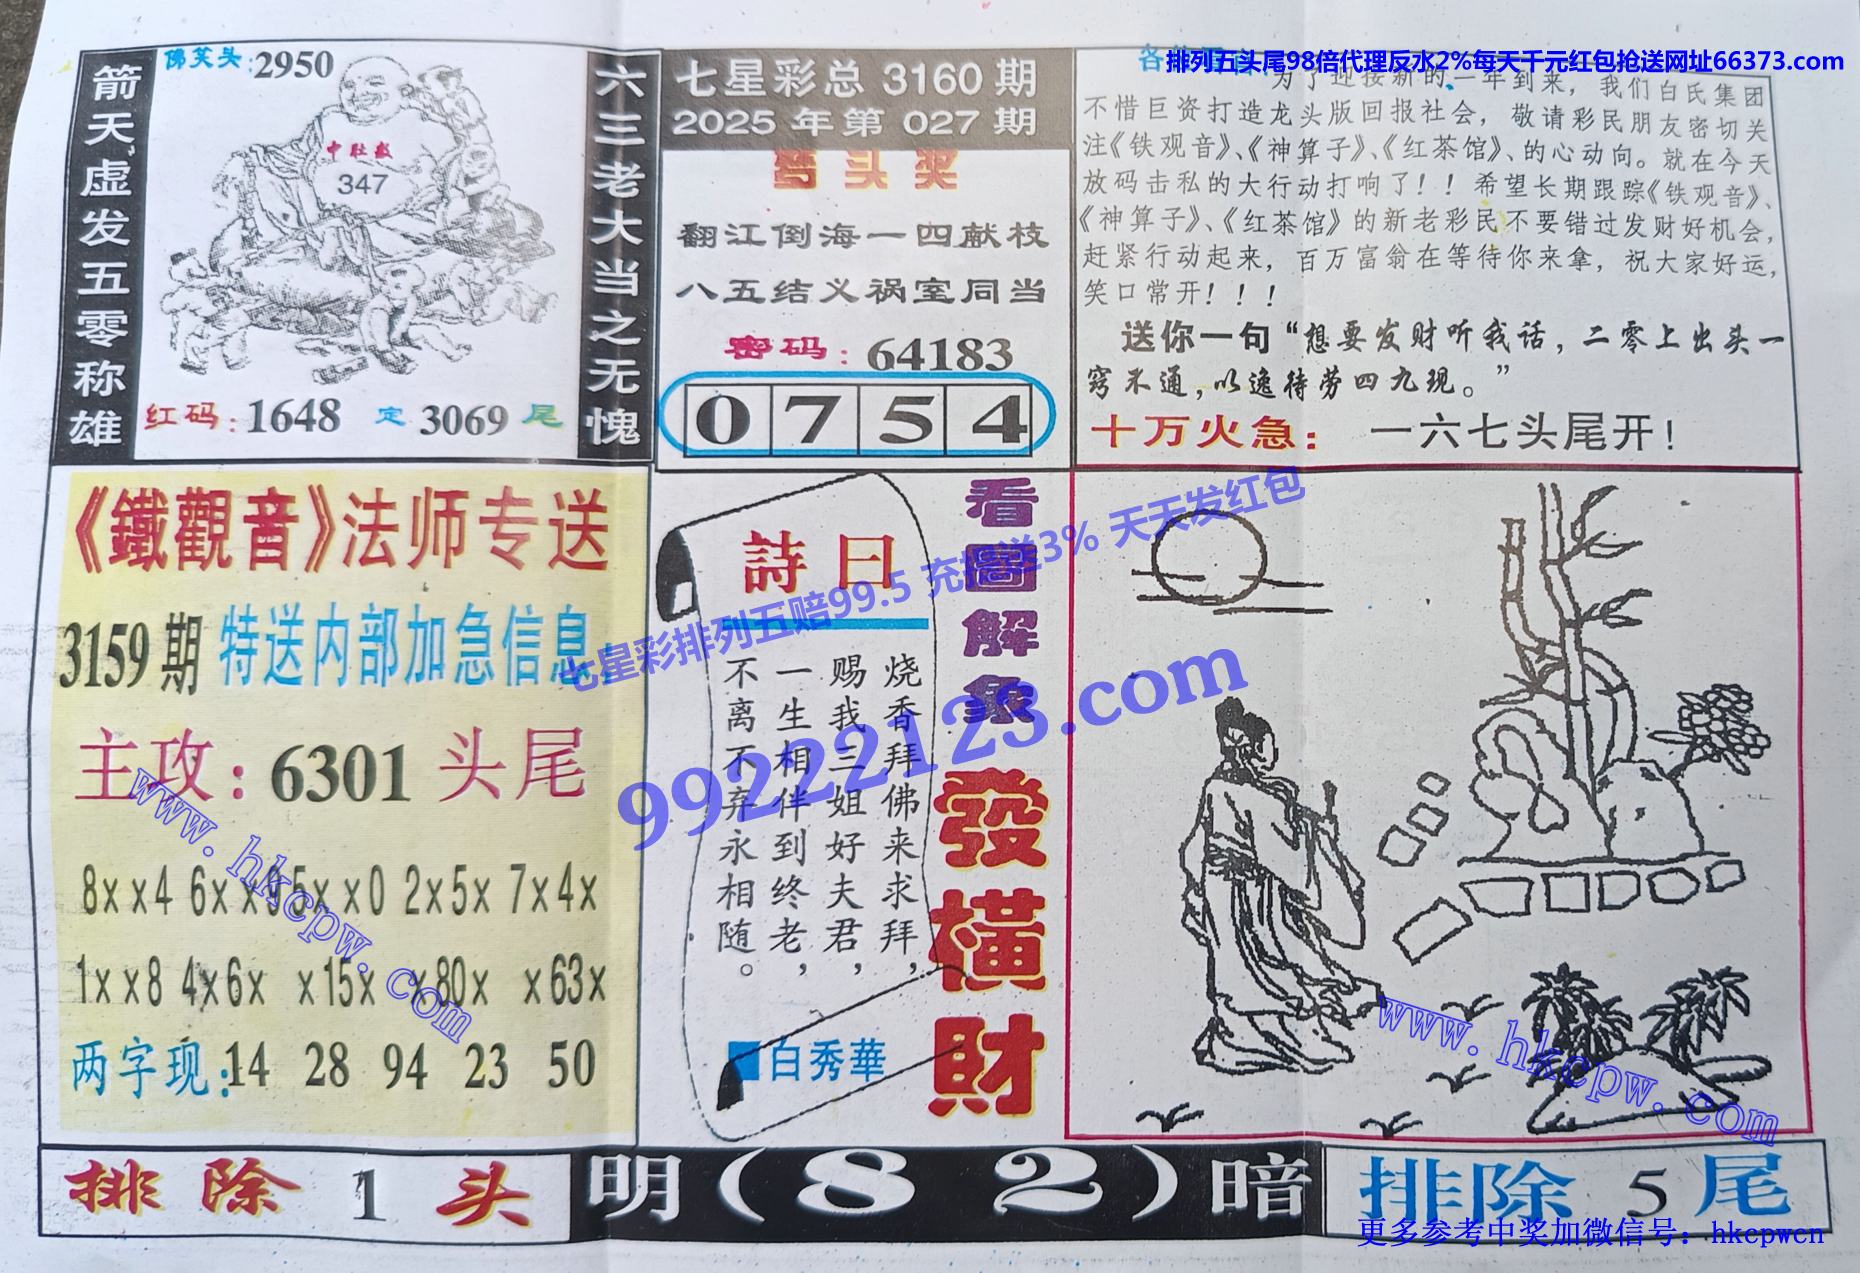 排列五头尾98倍代理反水2%每天千元红包抢送网址66373.com
箭天虚发五零称雄
佛笑头:2950
中肚数
347
红码:1648 定3069尾
六三老大当之无愧
七星彩总 3160 期
2025 年第 027 期
头奖
翻江倒海一四献枝
八五结义祸室同当
密码:64183
0754
为了迎接新的一年到来,我们白氏集团
不惜巨资打造龙头版回报社会,敬请彩民朋友密切关
注《铁观音》、《神算子》、《红茶馆》、的心动向。就在今天
放码击私的大行动打响了!!希望长期跟踪《铁观音》、
《神算子》、《红茶馆》的新老彩民不要错过发财好机会,
赶紧行动起来,百万富翁在等待你来拿,祝大家好运,
笑口常开!!!
送你一句“想要发财听我话,二零上出头一
窍不通,以逸待劳四九现。”
十万火急: 一六七头尾开!
《鐵觀音》法师专送
3159期 特送内部加急信息
主攻:6301头尾
8××4 6××9 5××0 2×5× 7×4×
1××8 4×6× ×15× ×80× ×63×
两字现:14 28 94 23 50
詩曰
烧香拜佛来求拜,
赐我三姐好夫君,
一生相伴到终老,
不离不弃永相随。
白秀華
看圖解象
發橫財
七星彩排列五赔99.5 充提送3% 天天发红包
99222123.com
www.hkcpw.com
www.hkcpw.com
排除 1 头
明(82)暗
排除 5 尾
更多参考中奖加微信号:hkcpwcn